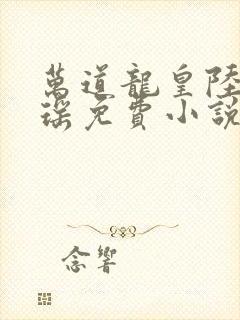 萬道龍皇陸
瑞免費小說
念響